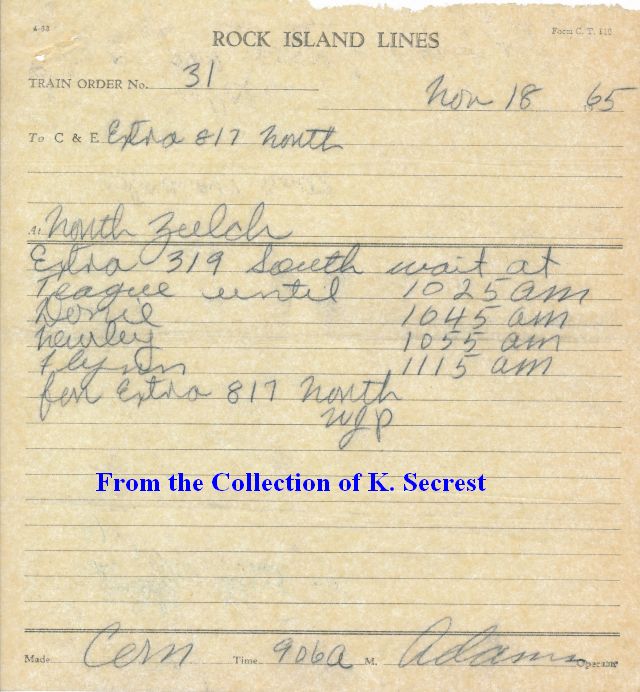 A-38
Form C. T. 110
ROCK ISLAND LINES
TRAIN ORDER No. 31
Nov 18 1965
To C & E Extra 817 North
At North Zulch
Extra 319 South wait at
Teague until 1025 am
Donie 1045 am
Newby 1055 am
Flynn 1115 am
for Extra 817 North
WJP
From the Collection of K. Secrest
Made Com Time 906a M. Adams Operator